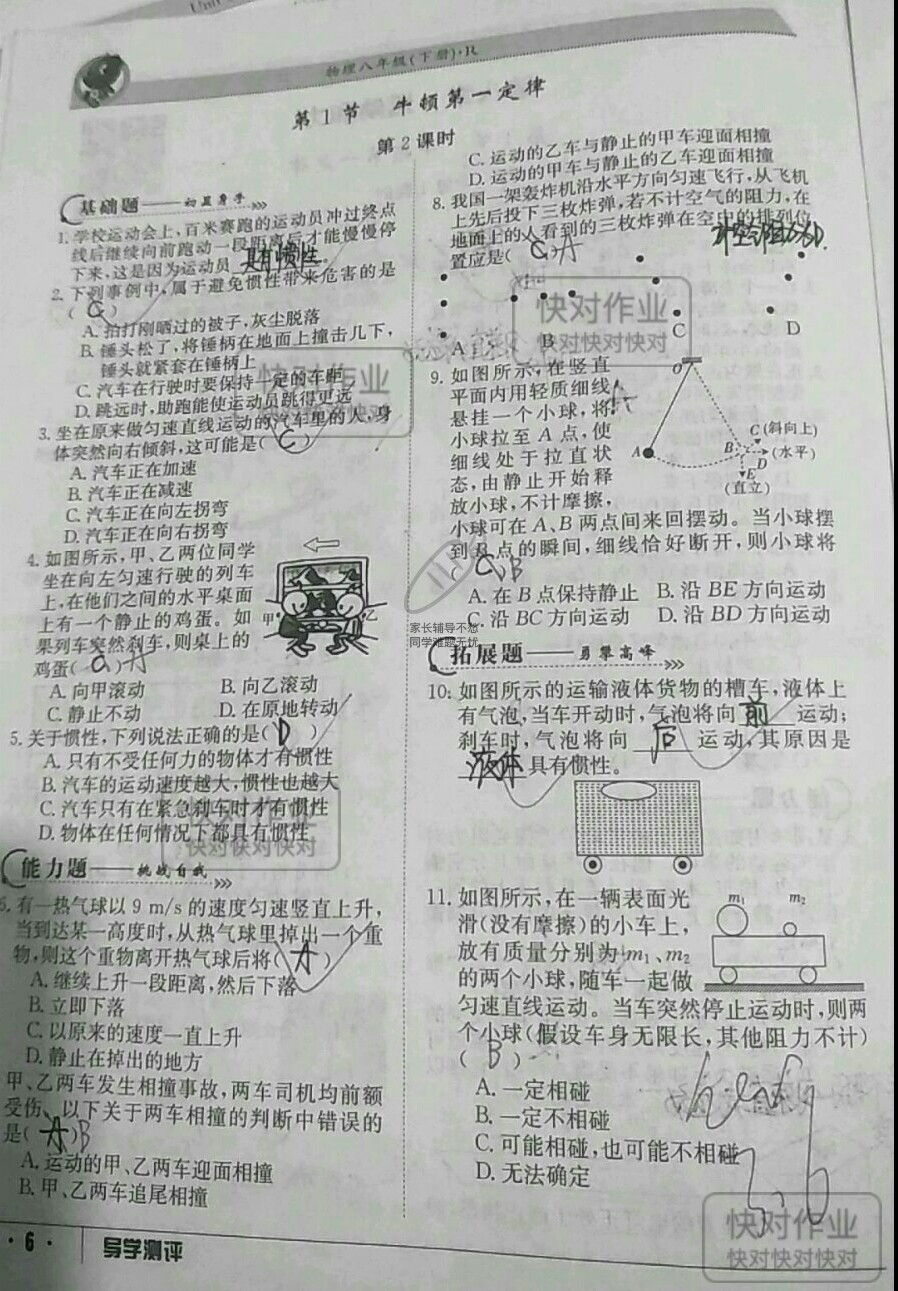 物理八年级(下册)·R
第1节 牛顿第一定律
第2课时
基础题——初显身手
1. 学校运动会上,百米赛跑的运动员冲过终点
线后继续向前跑动一段距离后才能慢慢停
下来,这是因为运动员具有惯性。
2. 下列事例中,属于避免惯性带来危害的是
( C )
A. 拍打刚晒过的被子,灰尘脱落
B. 锤头松了,将锤柄在地面上撞击几下,
锤头就紧套在锤柄上
C. 汽车在行驶时要保持一定的车距
D. 跳远时,助跑能使运动员跳得更远
3. 坐在原来做匀速直线运动的汽车里的人,身
体突然向右倾斜,这可能是( C )
A. 汽车正在加速
B. 汽车正在减速
C. 汽车正在向左拐弯
D. 汽车正在向右拐弯
4. 如图所示,甲、乙两位同学
坐在向左匀速行驶的列车
上,在他们之间的水平桌面
上有一个静止的鸡蛋。如
果列车突然刹车,则桌上的
鸡蛋( C )A
甲 乙
A. 向甲滚动 B. 向乙滚动
C. 静止不动 D. 在原地转动
5. 关于惯性,下列说法正确的是( D )
A. 只有不受任何力的物体才有惯性
B. 汽车的运动速度越大,惯性也越大
C. 汽车只有在紧急刹车时才有惯性
D. 物体在任何情况下都具有惯性
能力题——挑战自我
6. 有一热气球以 9 m/s 的速度匀速竖直上升,
当到达某一高度时,从热气球里掉出一个重
物,则这个重物离开热气球后将( A )
A. 继续上升一段距离,然后下落
B. 立即下落
C. 以原来的速度一直上升
D. 静止在掉出的地方
甲、乙两车发生相撞事故,两车司机均前额
受伤、以下关于两车相撞的判断中错误的
是( A )B
A. 运动的甲、乙两车迎面相撞
B. 甲、乙两车追尾相撞
·6· 导学测评
C. 运动的乙车与静止的甲车迎面相撞
D. 运动的甲车与静止的乙车迎面相撞
8. 我国一架轰炸机沿水平方向匀速飞行,从飞机
上先后投下三枚炸弹,若不计空气的阻力,在
地面上的人看到的三枚炸弹在空中的排列位
置应是( C )A
A B C D
9. 如图所示,在竖直
平面内用轻质细线
悬挂一个小球,将
小球拉至 A 点,使
细线处于拉直状
态,由静止开始释
放小球,不计摩擦,
小球可在 A、B 两点间来回摆动。当小球摆
到 B 点的瞬间,细线恰好断开,则小球将
( C )B
O
A
B
C (斜向上)
D (水平)
E
(直立)
A. 在 B 点保持静止 B. 沿 BE 方向运动
C. 沿 BC 方向运动 D. 沿 BD 方向运动
家长辅导不愁
同学难题无忧
拓展题——勇攀高峰
10. 如图所示的运输液体货物的槽车,液体上
有气泡,当车开动时,气泡将向 前 运动;
刹车时,气泡将向 后 运动,其原因是
液体具有惯性。
11. 如图所示,在一辆表面光
滑(没有摩擦)的小车上,
放有质量分别为 m₁、m₂
的两个小球,随车一起做
匀速直线运动。当车突然停止运动时,则两
个小球(假设车身无限长,其他阻力不计)
( B )
m₁ m₂
A. 一定相碰
B. 一定不相碰
C. 可能相碰,也可能不相碰
D. 无法确定
快对作业
快对快对快对
快对作业
快对快对快对
快对作业
快对快对快对
快对作业
快对快对快对